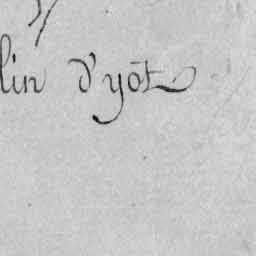 lin d'yôt